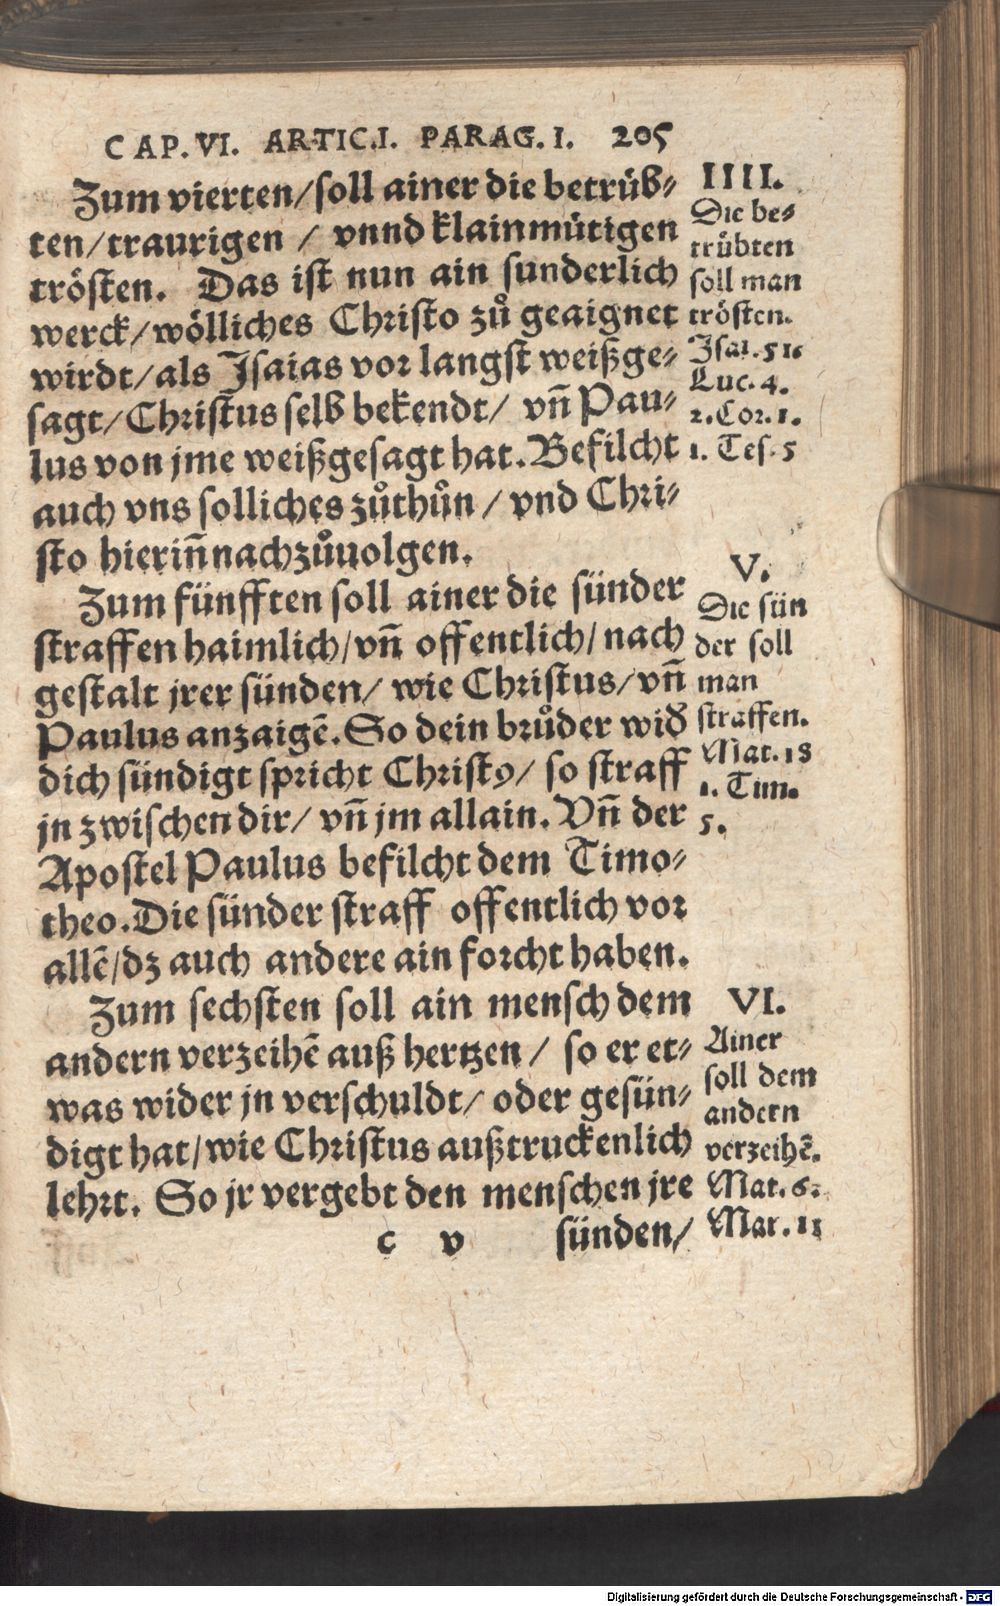 CAP. VI. ARTIC. I. PARAG. I. 205
Zum vierten/ soll ainer die betrüb⸗
ten/ traurigen / vnnd klainmütigen
trösten. Das ist nun ain sunderlich
werck/ wölliches Christo zů geaignet
wirdt/ als Isaias vor langst weißge⸗
sagt/ Christus selb bekendt/ vñ Pau⸗
lus von jme weißgesagt hat. Befilcht
auch vns solliches zůthůn / vnd Chri⸗
sto hieriñ nachzůuolgen.
Zum fünfften soll ainer die sünder
straffen haimlich/ vñ offentlich/ nach
gestalt jrer sünden/ wie Christus/ vñ
Paulus anzaigẽ. So dein brůder wid̕
dich sündigt spricht Christꝰ/ so straff
jn zwischen dir/ vñ jm allain. Vñ der
Apostel Paulus befilcht dem Timo⸗
theo. Die sünder straff offentlich vor
allẽ/ dz auch andere ain forcht haben.
Zum sechsten soll ain mensch dem
andern verzeihẽ auß hertzen / so er et⸗
was wider jn verschuldt/ oder gesün⸗
digt hat/ wie Christus außtruckenlich
lehrt. So jr vergebt den menschen jre
c v sünden/
IIII.
Die be⸗
trübten
soll man
trösten.
Isai. 51.
Luc. 4.
2. Cor. 1.
1. Tes. 5
V.
Die sün
der soll
man
straffen.
Mat. 18
1. Tim.
5.
VI.
Ainer
soll dem
andern
verzeihẽ.
Mat. 6.
Mar. 11
Digitalisierung gefördert durch die Deutsche Forschungsgemeinschaft - DFG